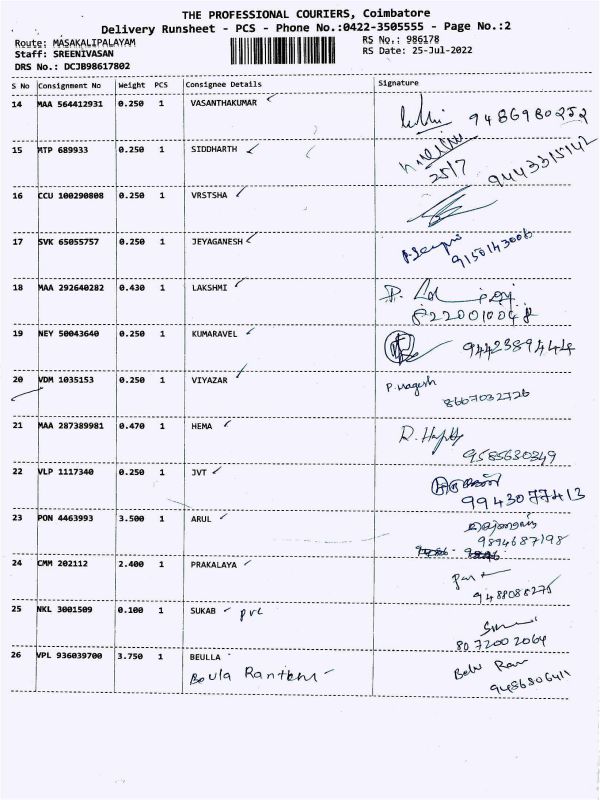 THE PROFESSIONAL COURIERS, Coimbatore
Delivery Runsheet - PCS - Phone No.:0422-3505555 - Page No.:2
Route: MASAKALIPALAYAM RS No.: 986178
Staff: SREENIVASAN RS Date: 25-Jul-2022
DRS No.: DCJB98617802
S No Consignment No Weight PCS Consignee Details Signature
14 MAA 564412931 0.250 1 VASANTHAKUMAR 9486980252
15 MTP 689933 0.250 1 SIDDHARTH
25/7 9443315142
16 CCU 100290808 0.250 1 VRSTSHA
17 SVK 65055757 0.250 1 JEYAGANESH
9150143006
18 MAA 292640282 0.430 1 LAKSHMI
19 NEY 50043640 0.250 1 KUMARAVEL 9442389444
20 VDM 1035153 0.250 1 VIYAZAR P. Nagesh
8667032726
21 MAA 287389981 0.470 1 HEMA
9585630349
22 VLP 1117340 0.250 1 JVT
9943077413
23 PON 4463993 3.500 1 ARUL
9894687198
24 CMM 202112 2.400 1 PRAKALAYA
9488086275
25 NKL 3001509 0.100 1 SUKAB pvc
8072002064
26 VPL 936039700 3.750 1 BEULLA
Beula 9486806411